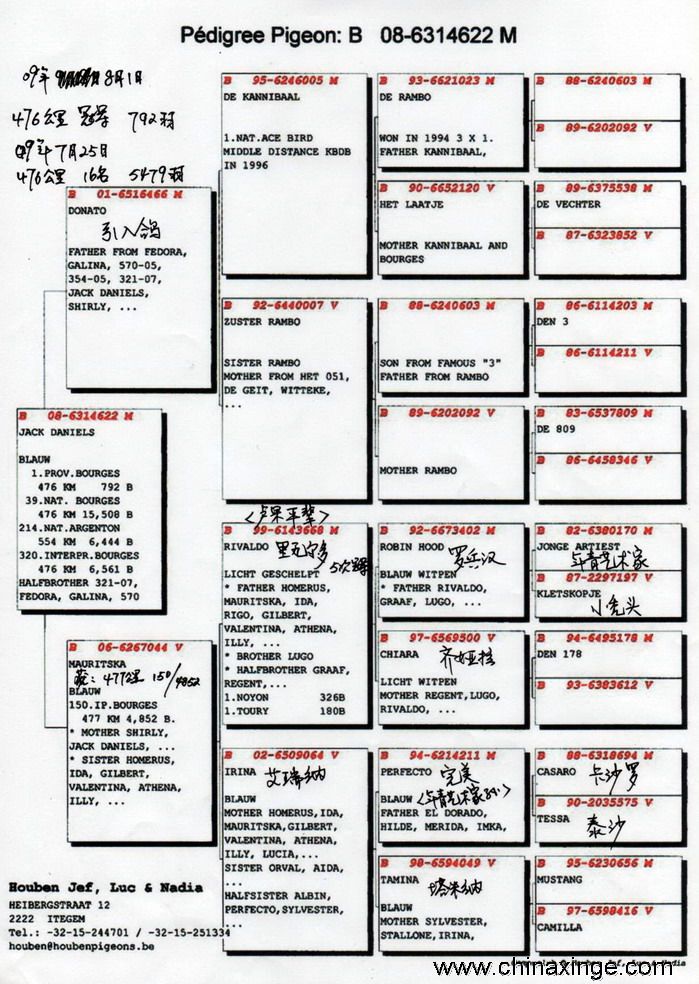 Pédigree Pigeon: B 08-6314622 M
09年 8月1日
476公里 冠军 792羽
09年7月25日
476公里 16名 5479羽
B 01-6516466 M
DONATO
引入鸽
FATHER FROM FEDORA,
GALINA, 570-05,
354-05, 321-07,
JACK DANIELS,
SHIRLY, ...
B 08-6314622 M
JACK DANIELS
BLAUW
1.PROV.BOURGES
476 KM 792 B
39.NAT. BOURGES
476 KM 15,508 B
214.NAT.ARGENTON
554 KM 6,444 B
320.INTERPR.BOURGES
476 KM 6,561 B
HALFBROTHER 321-07,
FEDORA, GALINA, 570
B 06-6267044 V
MAURITSKA
477公里 150/4852
BLAUW
150.IP.BOURGES
477 KM 4,852 B.
* MOTHER SHIRLY,
JACK DANIELS, ...
* SISTER HOMERUS,
IDA, GILBERT,
VALENTINA, ATHENA,
ILLY, ...
B 95-6246005 M
DE KANNIBAAL
1.NAT.ACE BIRD
MIDDLE DISTANCE KBDB
IN 1996
B 92-6440007 V
ZUSTER RAMBO
SISTER RAMBO
MOTHER FROM HET 051,
DE GEIT, WITTEKE,
...
B 99-6143668 M
RIVALDO 里瓦尔多
5次冠军
LICHT GESCHELPT
* FATHER HOMERUS,
MAURITSKA, IDA,
RIGO, GILBERT,
VALENTINA, ATHENA,
ILLY, ...
* BROTHER LUGO
* HALFBROTHER GRAAF,
REGENT,...
1.NOYON 326B
1.TOURY 180B
B 02-6509064 V
IRINA 艾瑞纳
BLAUW
MOTHER HOMERUS,IDA,
MAURITSKA,GILBERT,
VALENTINA, ATHENA,
ILLY, LUCIA,...
SISTER ORVAL, AIDA,
...
HALFSISTER ALBIN,
PERFECTO,SYLVESTER,
...
B 93-6621023 M
DE RAMBO
WON IN 1994 3 X 1.
FATHER KANNIBAAL,
B 90-6652120 V
HET LAATJE
MOTHER KANNIBAAL AND
BOURGES
B 88-6240603 M
SON FROM FAMOUS "3"
FATHER FROM RAMBO
B 89-6202092 V
MOTHER RAMBO
B 92-6673402 M
ROBIN HOOD
罗兵汉
BLAUW WITPEN
* FATHER RIVALDO,
GRAAF, LUGO, ...
B 97-6569500 V
CHIARA
LICHT WITPEN
MOTHER REGENT,LUGO,
RIVALDO, ...
B 94-6214211 M
PERFECTO 完美
BLAUW
FATHER EL DORADO,
HILDE, MERIDA, IMKA,
B 98-6594049 V
TAMINA
塔米纳
BLAUW
MOTHER SYLVESTER,
STALLONE,IRINA,
B 88-6240603 M
B 89-6202092 V
B 89-6375538 M
DE VECHTER
B 87-6323852 V
B 86-6114203 M
DEN 3
B 86-6114211 V
B 83-6537809 M
DE 809
B 86-6458346 V
B 82-6380170 M
JONGE ARTIEST
年青艺术家
B 87-2297197 V
KLETSKOPJE
小秃头
B 94-6495178 M
DEN 178
B 93-6383612 V
B 88-6318694 M
CASARO 卡沙罗
B 90-2035575 V
TESSA 泰沙
B 95-6230656 M
MUSTANG
B 97-6598416 V
CAMILLA
Houben Jef, Luc & Nadia
HEIBERGSTRAAT 12
2222 ITEGEM
Tel.: -32-15-244701 / -32-15-251334
houben@houbenpigeons.be
www.chinaxinge.com